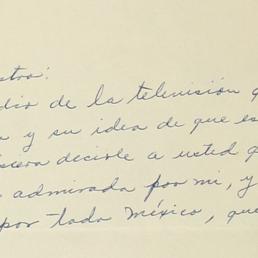 stro:
dio de la televisión q
a y su idea de que es
siera decirle a usted q
admirada por mi, y
por todo México, que